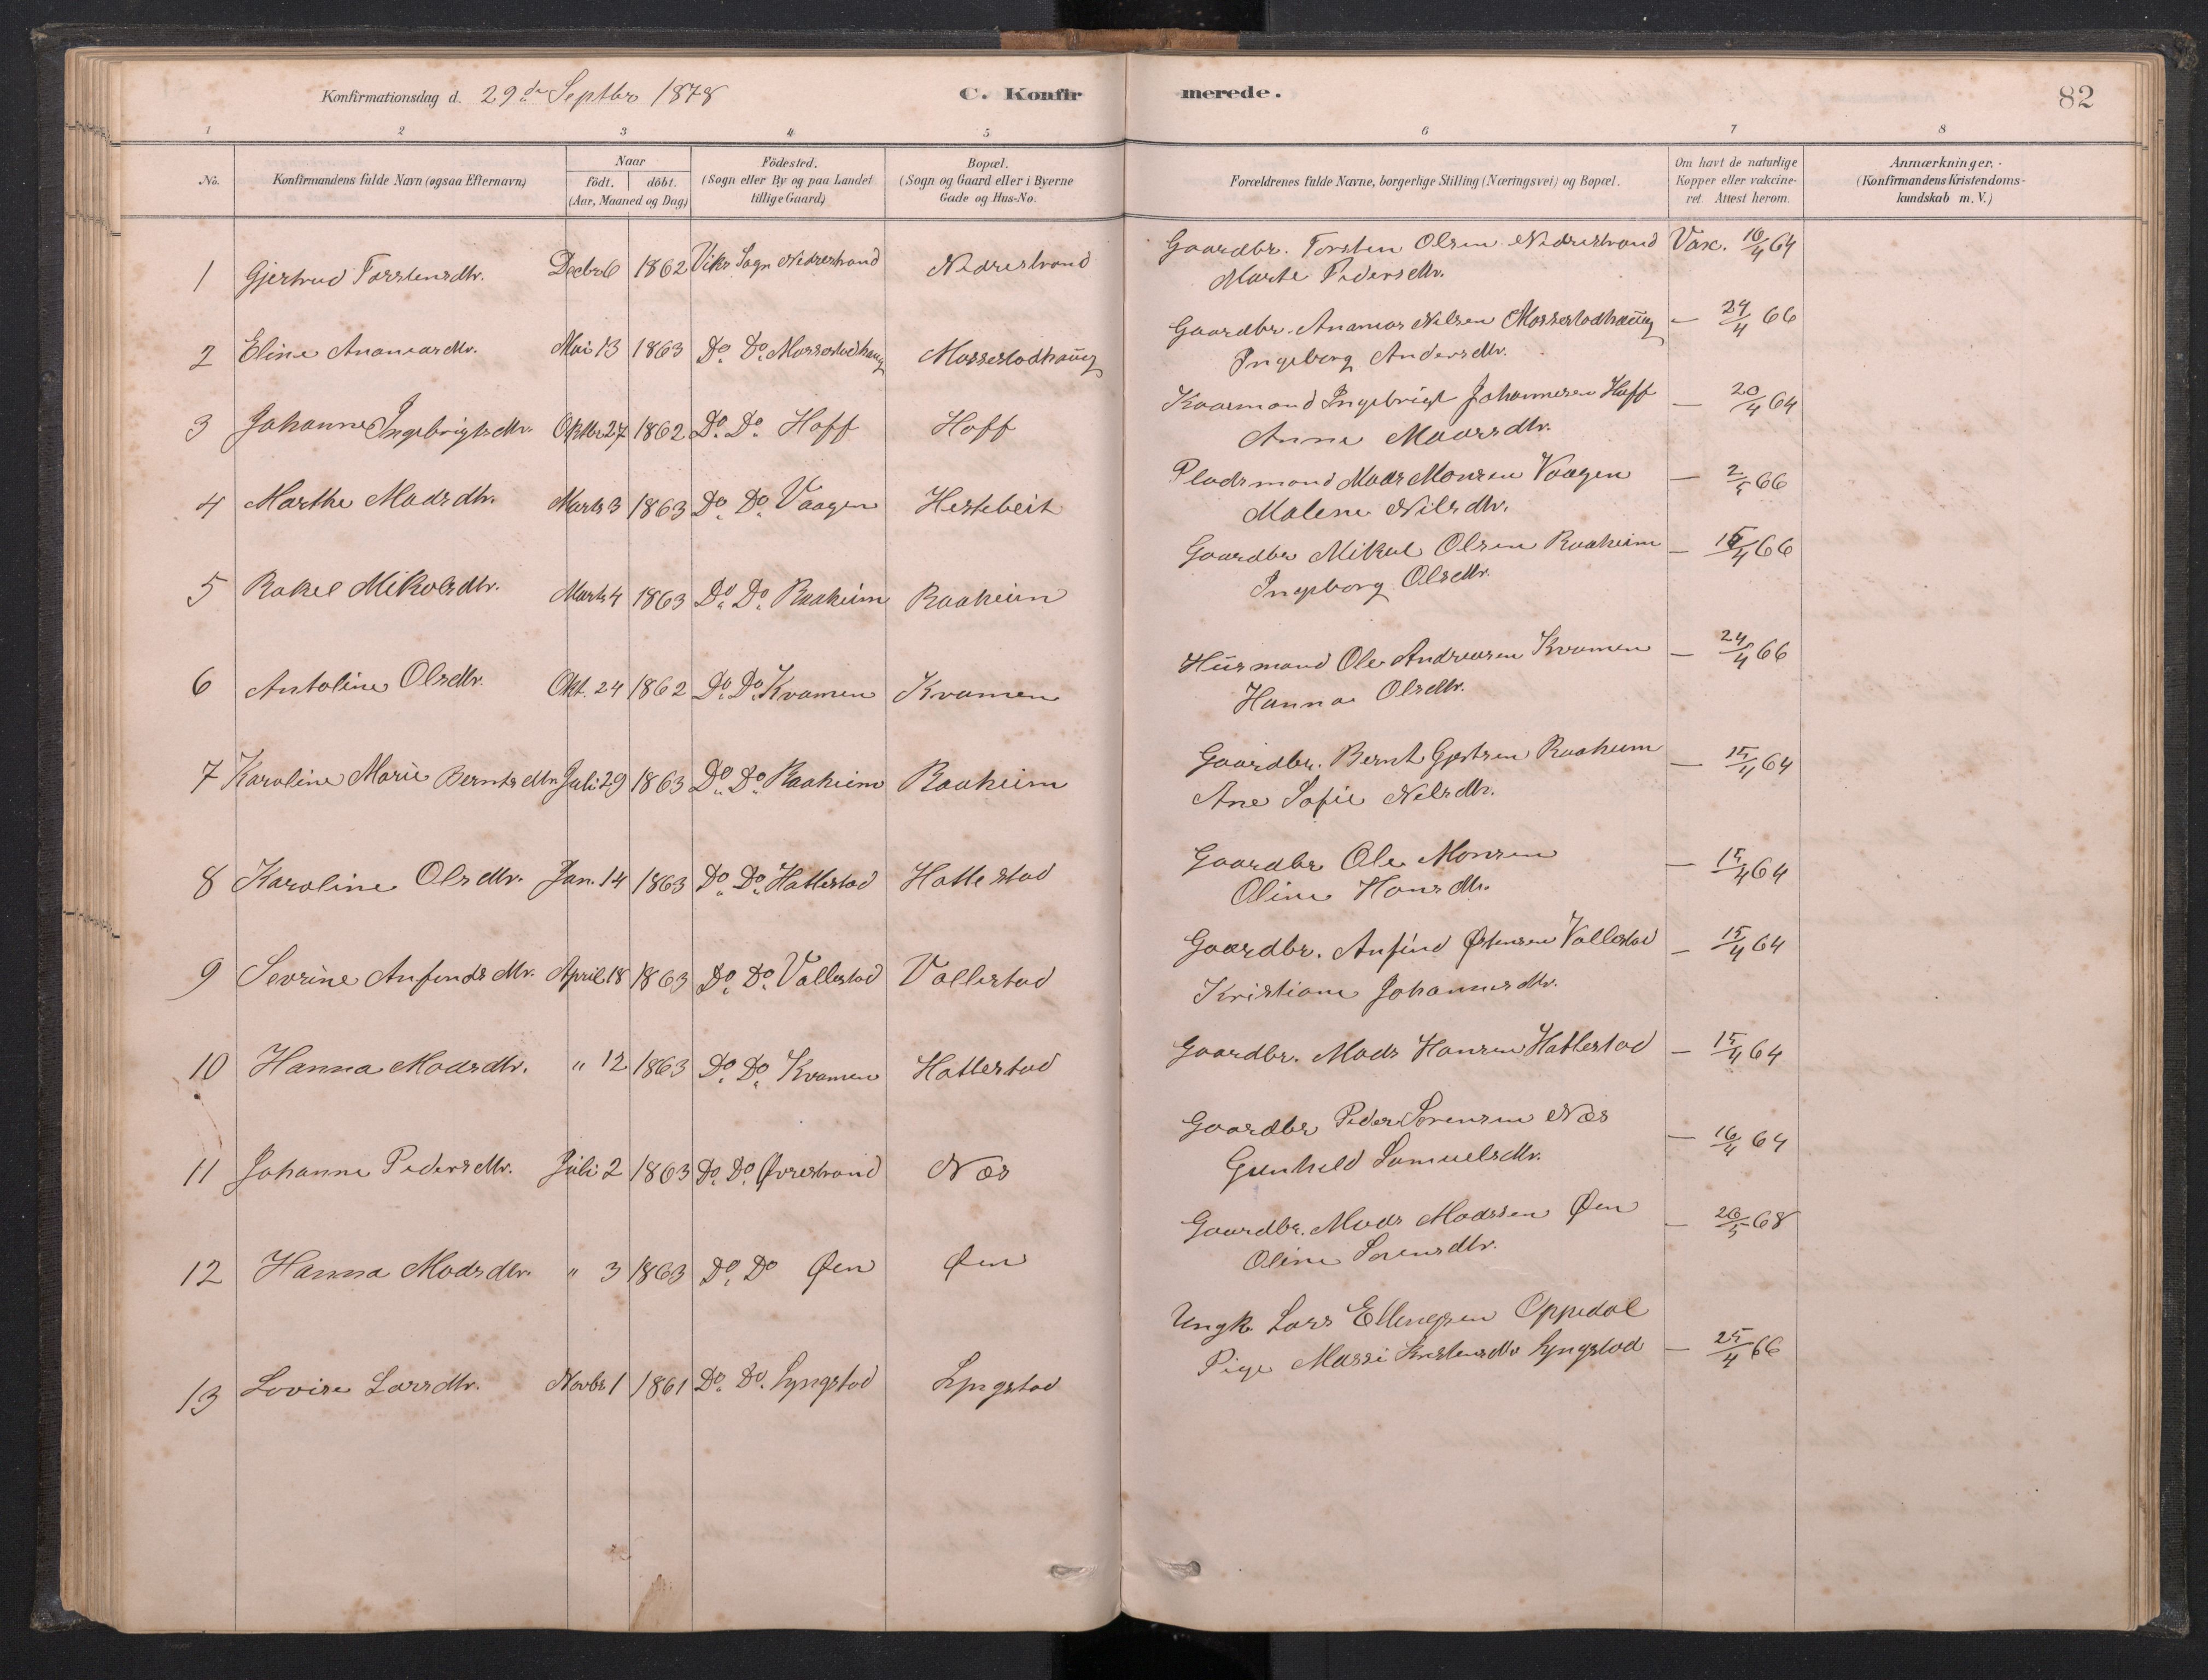 Konfirmationsdag d. 29de Septbr 1878
C. Konfirmerede.
82
1 2 3 4 5 6 7 8
No.
Konfirmandens fulde Navn (ogsaa Efternavn)
Naar
födt. döbt.
(Aar, Maaned og Dag)
Födested.
(Sogn eller By og paa Landet
tillige Gaard)
Bopæl.
(Sogn og Gaard eller i Byerne
Gade og Hus-No.
Forældrenes fulde Navne, borgerlige Stilling (Næringsvei) og Bopæl.
Om havt de naturlige
Kopper eller vakcine-
ret. Attest herom.
Anmærkninger.
(Konfirmandens Kristendoms-
kundskab m. V.)
1 Gjertrud Torstensdtr. Decbr 6 1862 Viks Sogn Nedrestrand Nedrestrand Gaardbr. Torsten Olsen Nedrestrand Vax. 16/4 64
Marte Pedersdtr.
2 Eline Ananiasdtr. Mai 13 1863 Do. Do. Massestadhaug Massestadhaug Gaardbr. Ananias Nilsen Massestadhaug — 24/4 66
Ingeborg Andersdtr.
3 Johanne Ingebrigtsdtr. Oktbr 27 1862 Do. Do. Hoff Hoff Kaarmand Ingebrigt Johannesen Hoff — 20/4 64
Anne Madsdtr.
4 Marthe Madsdtr. Marts 3 1863 Do. Do. Vaagen Hestebeit Pladsmand Mads Monsen Vaagen — 2/5 66
Malene Nilsdtr.
5 Rakel Mikalsdtr. Marts 4 1863 Do. Do. Raaheim Raaheim Gaardbr Mikal Olsen Raaheim — 15/4 66
Ingeborg Olsdtr.
6 Antoline Olsdtr. Okt. 24 1862 Do. Do. Kvamen Kvamen Husmand Ole Andreasen Kvamen — 24/4 66
Hanna Olsdtr.
7 Karoline Marie Berntsdtr. Juli 29 1863 Do. Do. Raaheim Raaheim Gaardbr. Bernt Gjertsen Raaheim — 15/4 64
Ane Sofie Nelsdtr.
8 Karoline Olsdtr. Jan. 14 1863 Do. Do. Hatlestad Hatlestad Gaardbr Ole Monsen — 15/4 64
Oline Hansdtr.
9 Sevrine Anfindsdtr. April 18 1863 Do. Do. Vallestad Vallestad Gaardbr. Anfind Østensen Vallestad — 15/4 64
Kristiane Johannesdtr.
10 Hanna Madsdtr. " 12 1863 Do. Do. Kvamen Hatlestad Gaardbr. Mads Hansen Hatlestad — 15/4 64
11 Johanne Pedersdtr. Juli 2 1863 Do. Do. Øvrestrand Næs Gaardbr Peder Sorensen Næs — 16/4 64
Gunhild Samuelsdtr.
12 Hanna Madsdtr. " 3 1863 Do. Do Øen Øen Gaardbr. Mads Madssen Øen — 26/5 68
Oline Sorensdtr.
13 Lovise Larsdtr. Novbr 1 1861 Do. Do. Lyngstad Lyngstad Ungk. Lars Ellingsen Oppedal
Pige Massi Kristensdtr Lyngstad — 25/4 66